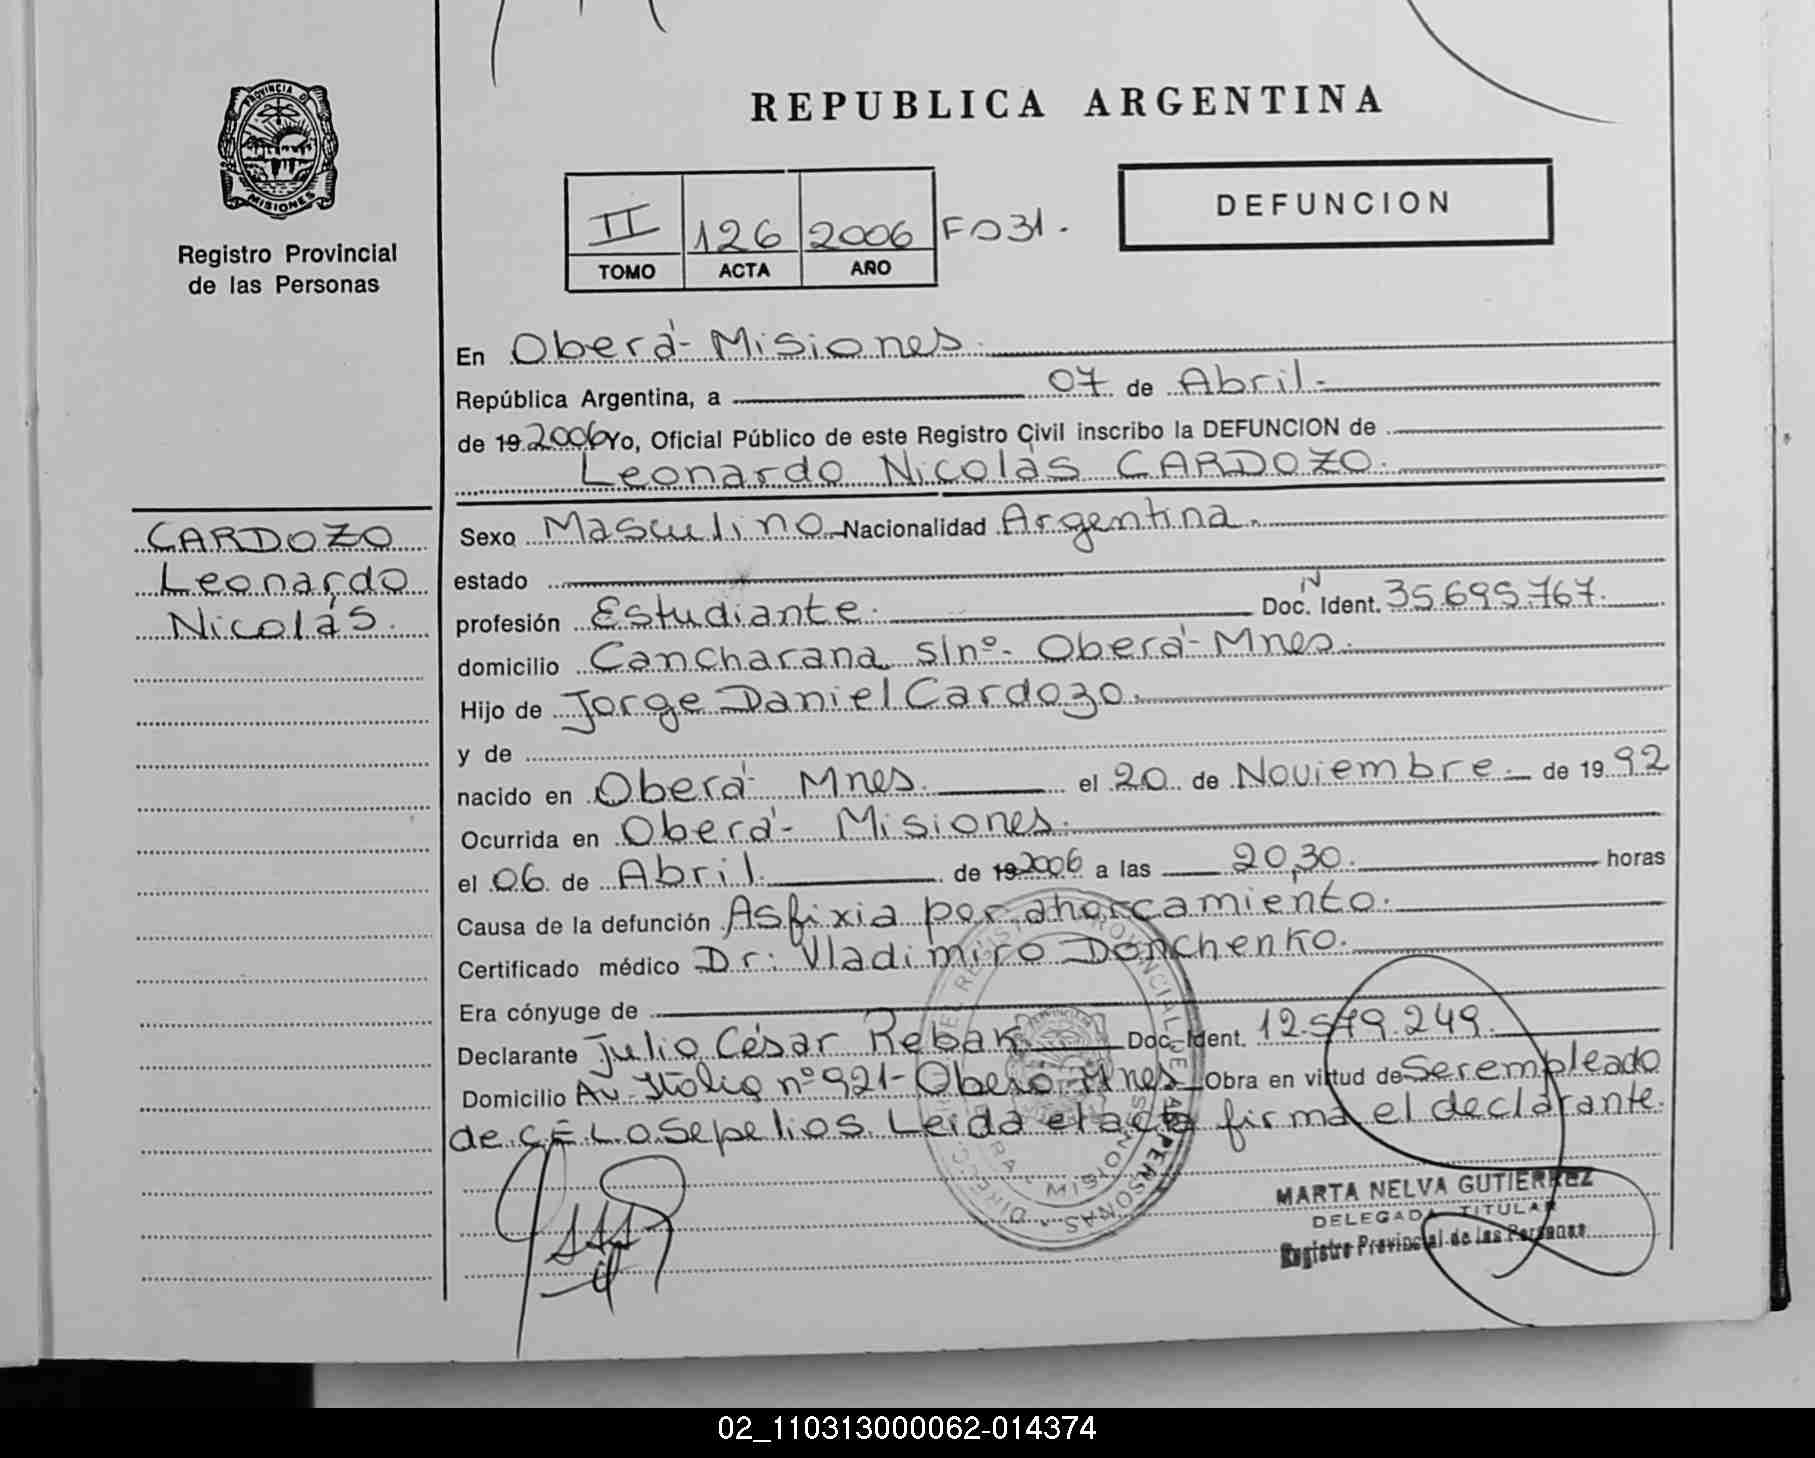 REPUBLICA ARGENTINA
PROVINCIA D
MISIONES
Registro Provincial
de las Personas
II 126 2006 F031.
TOMO ACTA AÑO
DEFUNCION
En Oberá - Misiones.
República Argentina, a 07 de Abril.-
de 19 2006 Yo, Oficial Público de este Registro Civil inscribo la DEFUNCION de
Leonardo Nicolás CARDOZO.
CARDOZO
Leonardo
Nicolás.
Sexo Masculino Nacionalidad Argentina.
estado
profesión Estudiante. Doc. N Ident. 35.695.767.
domicilio Cancharana s/nº- Oberá - Mnes.
Hijo de Jorge Daniel Cardozo.
y de
nacido en Oberá - Mnes. el 20 de Noviembre.- de 19 92
Ocurrida en Oberá - Misiones.
el 06 de Abril. de 19 2006 a las 20,30. horas
Causa de la defunción Asfixia por ahorcamiento.
Certificado médico Dr: Vladimiro Donchenko.
Era cónyuge de
Declarante Julio César Rebak. Doc. Ident. 12.579.249.
Domicilio Av. Italia nº 921- Oberá Mnes. Obra en virtud de Ser empleado
de C.E.L.O Sepelios. Leida el acta firma el declarante.
MARTA NELVA GUTIERREZ
DELEGADA TITULAR
Registro Provincial de las Personas
02_110313000062-014374